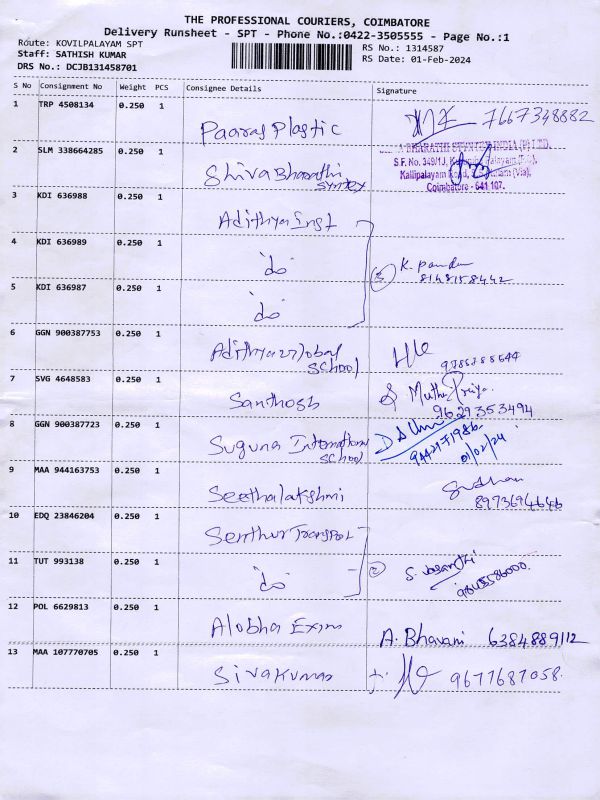 THE PROFESSIONAL COURIERS, COIMBATORE
Delivery Runsheet - SPT - Phone No.:0422-3505555 - Page No.:1
Route: KOVILPALAYAM SPT
RS No.: 1314587
Staff: SATHISH KUMAR
RS Date: 01-Feb-2024
DRS No.: DCJB131458701
S No Consignment No Weight PCS Consignee Details Signature
1 TRP 4508134 0.250 1 Paaras Plastic 7667348882
2 SLM 338664285 0.250 1 Shiva Bharathi
Syntex
BHARATHI INDIA (P) LTD.
S.F. No. 349/1J,
Kallipalayam Road, (Via),
Coimbatore - 641 107.
3 KDI 636988 0.250 1 Adithya Inst
4 KDI 636989 0.250 1 do
3 K. Pandu
8148158442
5 KDI 636987 0.250 1 do
6 GGN 900387753 0.250 1 Adithya global
School
7 SVG 4648583 0.250 1 Santhosh
Muthu Priya
9629353494
8 GGN 900387723 0.250 1 Suguna International
School
01/02/24
9 MAA 944163753 0.250 1 Seethalakshmi
8973694646
10 EDQ 23846204 0.250 1 Senthur Transport
11 TUT 993138 0.250 1 do
2 S. Vasanthi
12 POL 6629813 0.250 1 Alobha Exim
A. Bhavani 6384889112
13 MAA 107770705 0.250 1 Sivakumar 9677687058